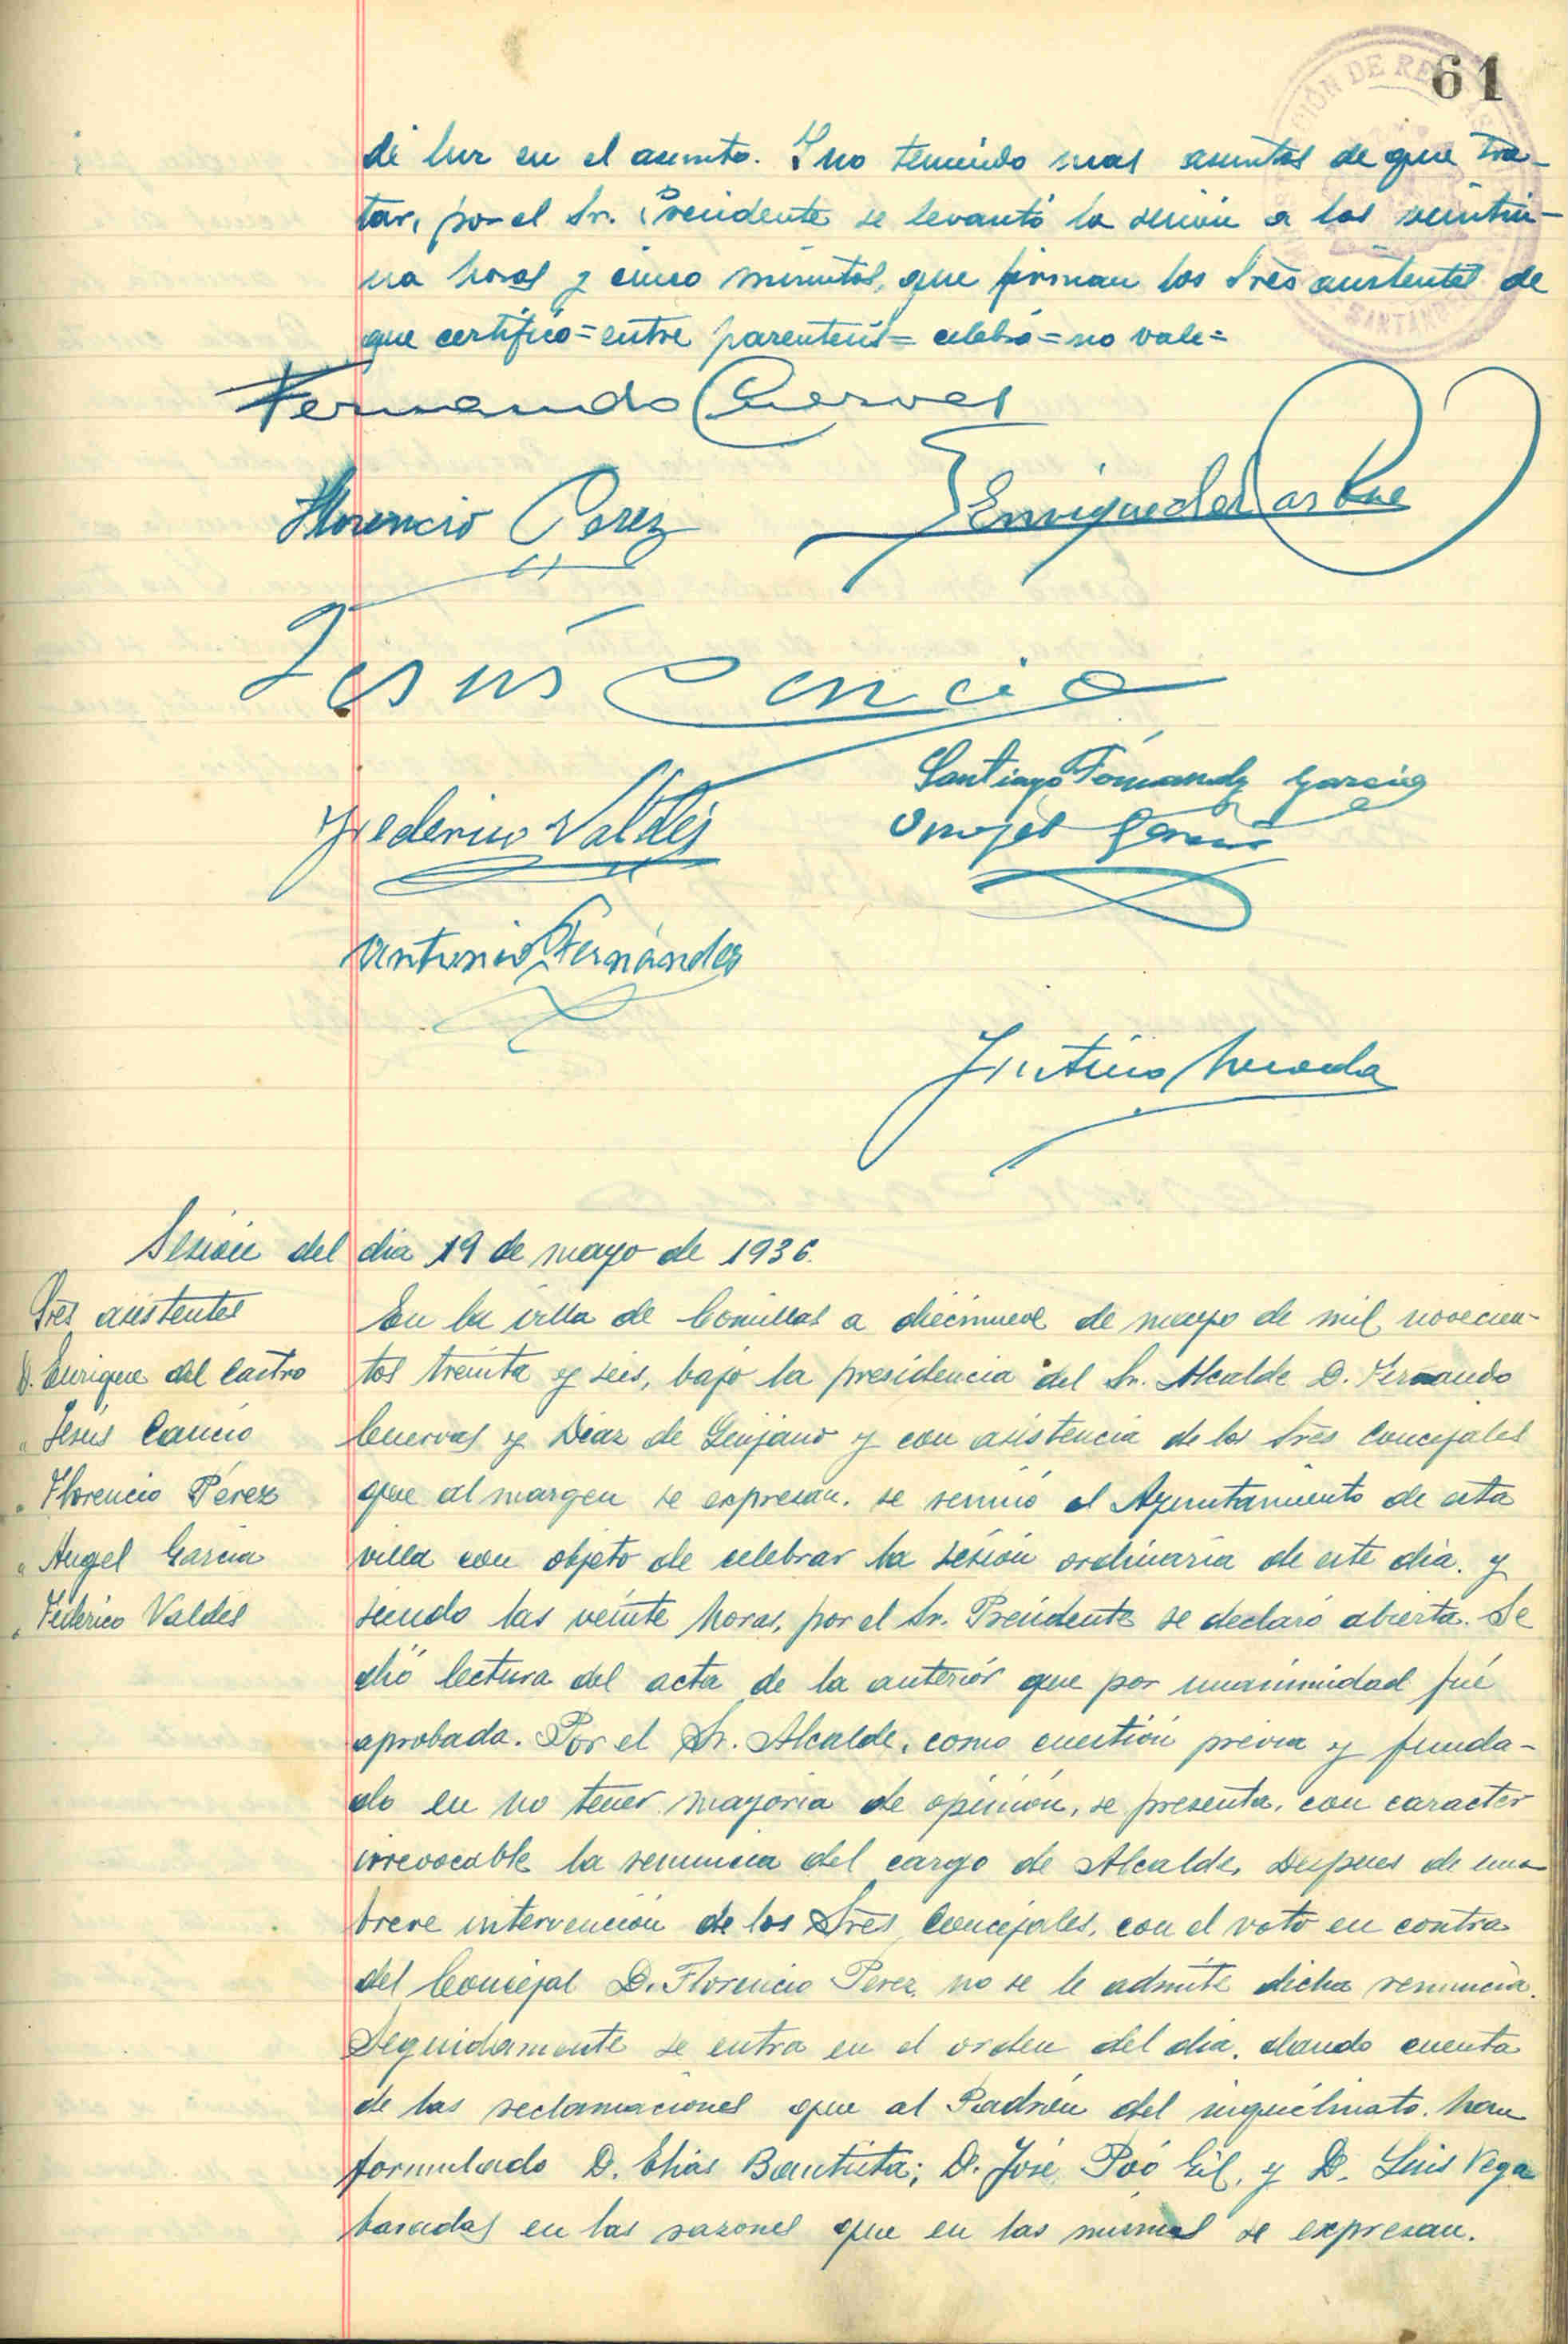 61
de luz en el asunto. Y no teniendo mas asuntos de que tra-
tar, por el Sr. Presidente se levantó la sesión a las veintiu-
na horas y cinco minutos, que firman los Sres asistentes de
que certifico = entre parentesis = celebró = no vale =
Fernando Cuervas
Florencio Perez
Enrique del Castro
Jesús Cancio
Santiago Fernandez Garcia
Federico Valdés
Angel Garcia
Antonio Fernández
Sesión del dia 19 de mayo de 1936.
Sres asistentes
D. Enrique del Castro
" Jesús Cancio
" Florencio Pérez
" Angel Garcia
" Federico Valdés
En la villa de Comillas a diecinueve de mayo de mil novecien-
tos treinta y seis, bajo la presidencia del Sr. Alcalde D. Fernando
Cuervas y Diaz de Quijano y con asistencia de los Sres Concejales
que al margen se expresan, se reunió el Ayuntamiento de esta
villa con objeto de celebrar la sesión ordinaria de este dia, y
siendo las veinte horas, por el Sr. Presidente se declaró abierta. Se
dió lectura del acta de la anterior que por unanimidad fué
aprobada. Por el Sr. Alcalde, como cuestión previa y funda-
do en no tener mayoria de opinión, se presenta, con caracter
irrevocable la renuncia del cargo de Alcalde, Despues de una
breve intervención de los Sres Concejales, con el voto en contra
del Concejal D. Florencio Perez, no se le admite dicha renuncia.
Seguidamente se entra en el orden del dia, dando cuenta
de las reclamaciones que al Padrón del inquilinato, han
formulado D. Elias Bautista; D. José Poó Gil, y D. Luis Vega
basadas en las razones que en las mismas se expresan.